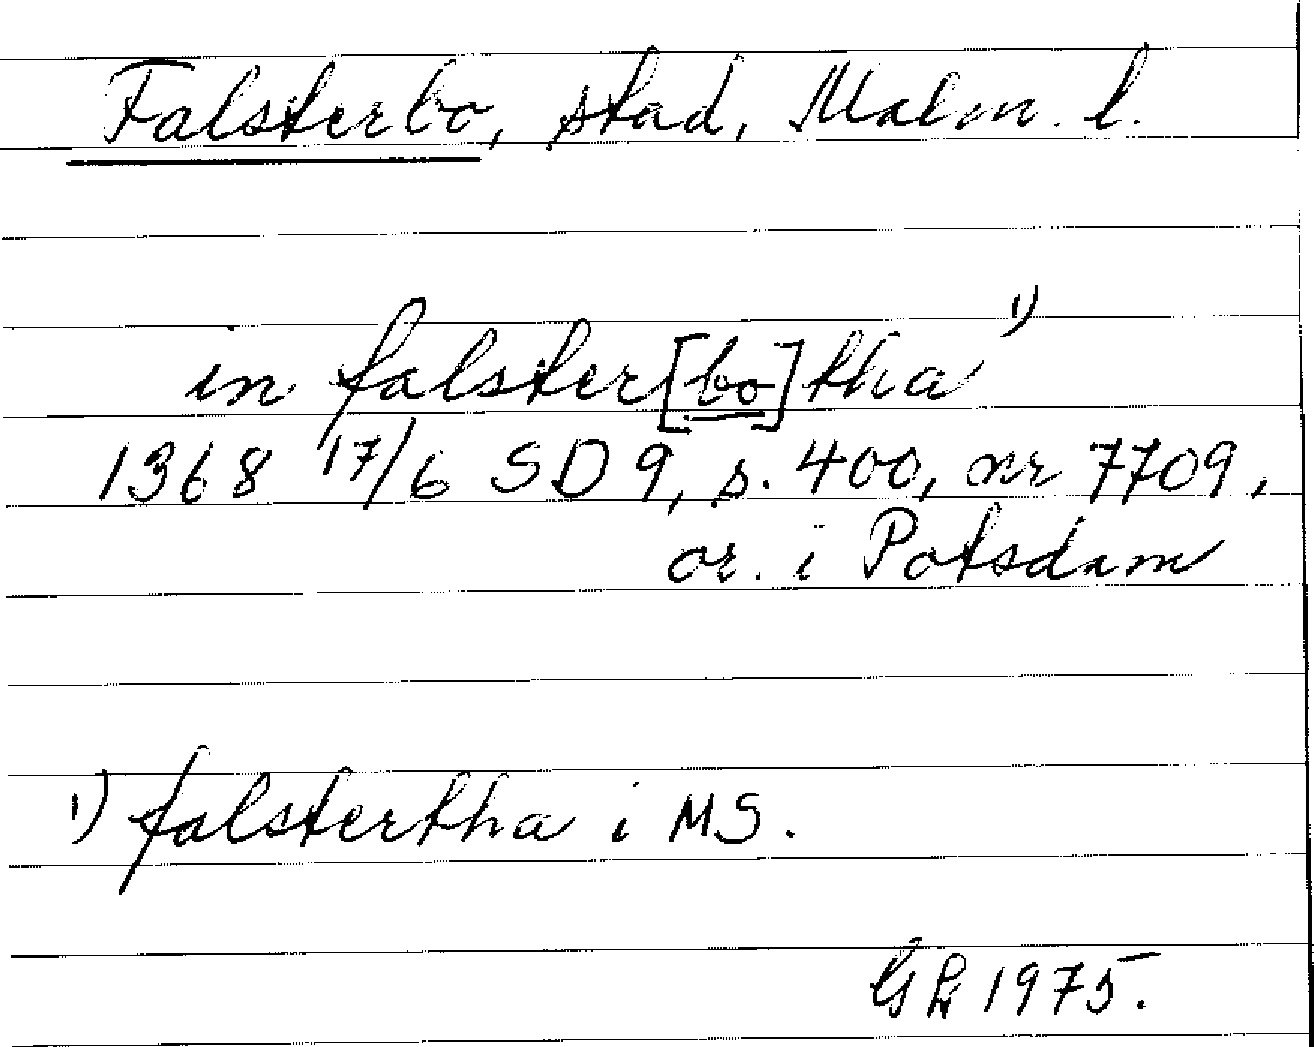 Falsterbo, stad, Malm. l.
in falster[bo]tha ¹)
1368 17/6 SD 9, s. 400, nr 7709,
or. i Potsdam
¹) falstertha i MS.
1975.